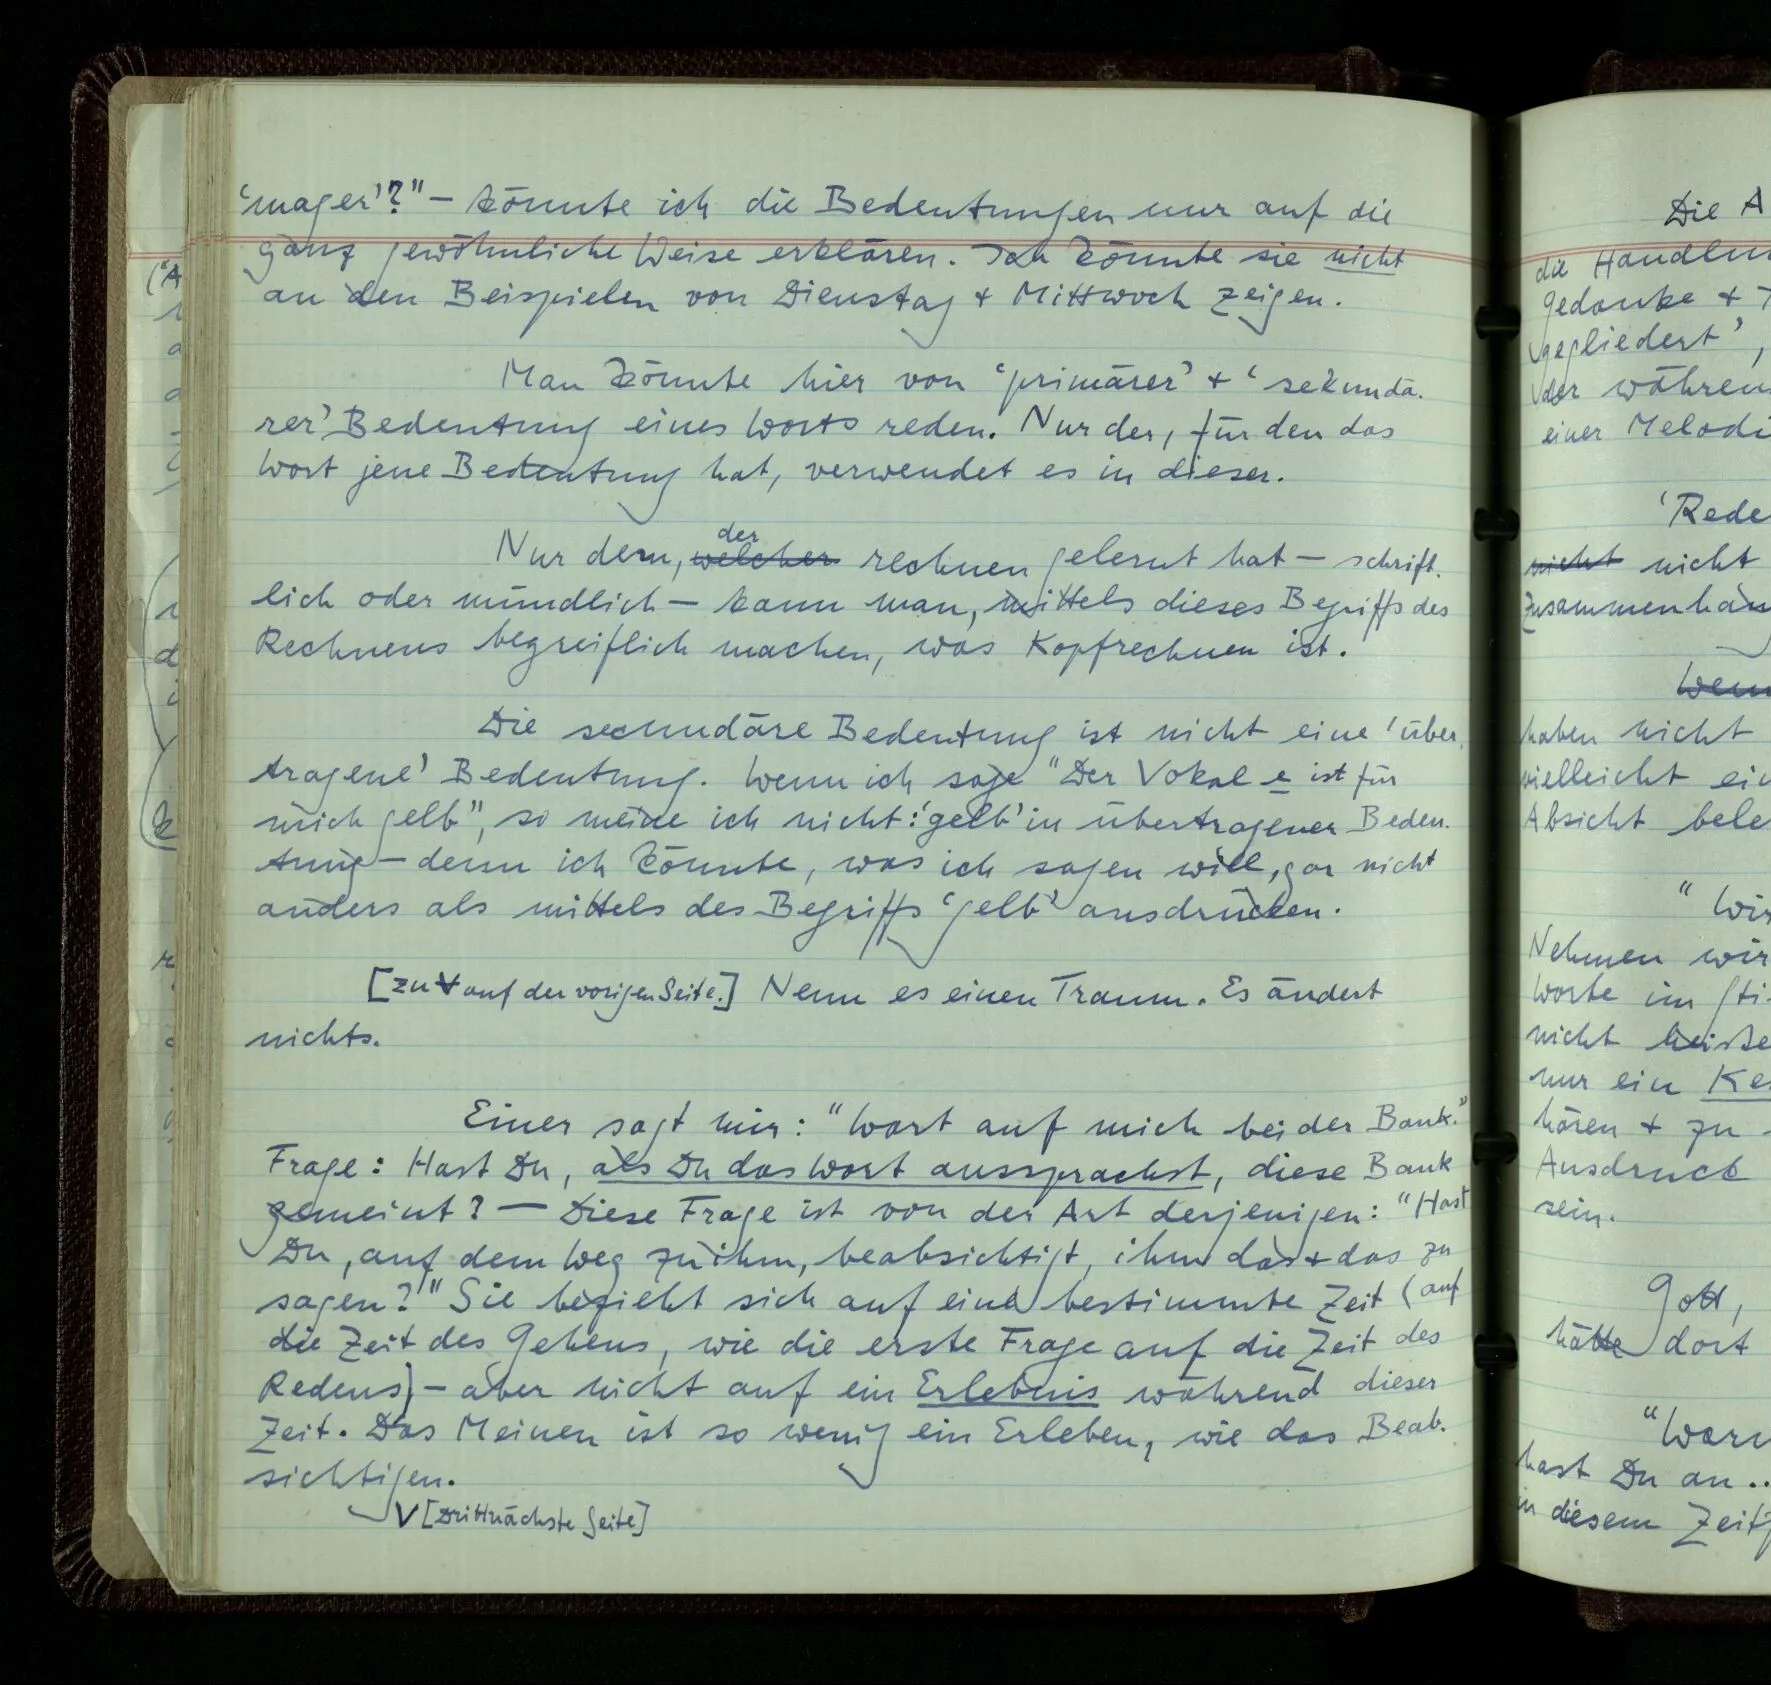 'mager'?" – könnte ich die Bedeutungen nur auf die
ganz gewöhnliche Weise erklären. Ich könnte sie nicht
an den Beispielen von Dienstag + Mittwoch zeigen.
Man könnte hier von 'primärer' + 'sekundä-
rer' Bedeutung eines Worts reden. Nur der, für den das
Wort jene Bedeutung hat, verwendet es in dieser.
der
Nur dem, welcher rechnen gelernt hat – schrift-
lich oder mündlich – kann man, mittels dieses Begriffs des
Rechnens begreiflich machen, was Kopfrechnen ist.
Die secundäre Bedeutung ist nicht eine 'über-
tragene' Bedeutung. Wenn ich sage "Der Vokal e ist für
mich gelb", so meine ich nicht: 'gelb' in übertragener Bedeu-
tung – denn ich könnte, was ich sagen will, gar nicht
anders als mittels des Begriffs 'gelb' ausdrücken.
[zu V auf der vorigen Seite.] Nenn es einen Traum. Es ändert
nichts.
Einer sagt mir: "Wart auf mich bei der Bank."
Frage: Hast Du, als Du das Wort aussprachst, diese Bank
gemeint? – Diese Frage ist von der Art derjenigen: "Hast
Du, auf dem Weg zu ihm, beabsichtigt, ihm das + das zu
sagen?" Sie bezieht sich auf eine bestimmte Zeit (auf
die Zeit des Gehens, wie die erste Frage auf die Zeit des
Redens) – aber nicht auf ein Erlebnis während dieser
Zeit. Das Meinen ist so wenig ein Erleben, wie das Beab-
sichtigen.
V [Drittnächste Seite]
Die A
die Handlun
Gedanke +
gegliedert',
der währen
einer Melodi
'Rede
nicht nicht
Zusammenhan
Wenn
haben nicht
vielleicht ein
Absicht bele
" Wir
Nehmen wir
Worte im Sti
nicht heiße
nur ein Ke
hören + zu
Ausdruck
sein.
Gott,
hätte dort
"Waru
hast Du an ..
in diesem Zeitp